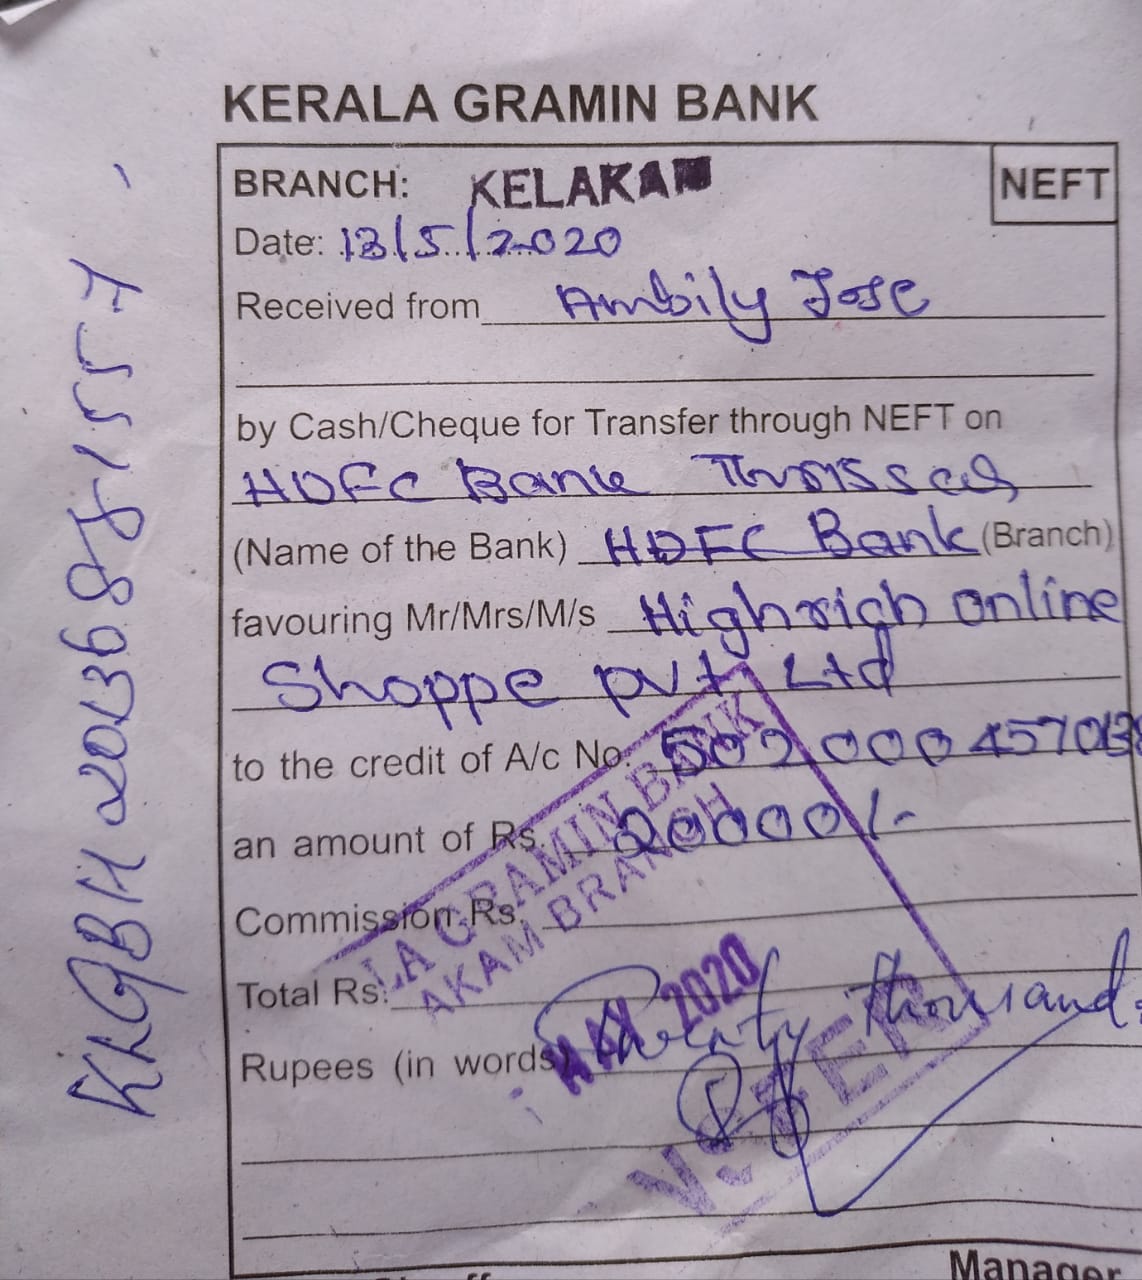 KERALA GRAMIN BANK
NEFT
BRANCH: KELAKAM
Date: 13/5/2020
Received from Ambily Jose
by Cash/Cheque for Transfer through NEFT on
HDFC Bank Thrissur
(Name of the Bank) HDFC Bank (Branch)
favouring Mr/Mrs/M/s Highrich online
Shoppe pvt Ltd
to the credit of A/c No. 502000457013
an amount of Rs. 20000/-
Commission Rs.
Total Rs.
Rupees (in words) Twenty thousand
LA GRAMIN BANK
AKAM BRANCH
MAY 2020
Manager